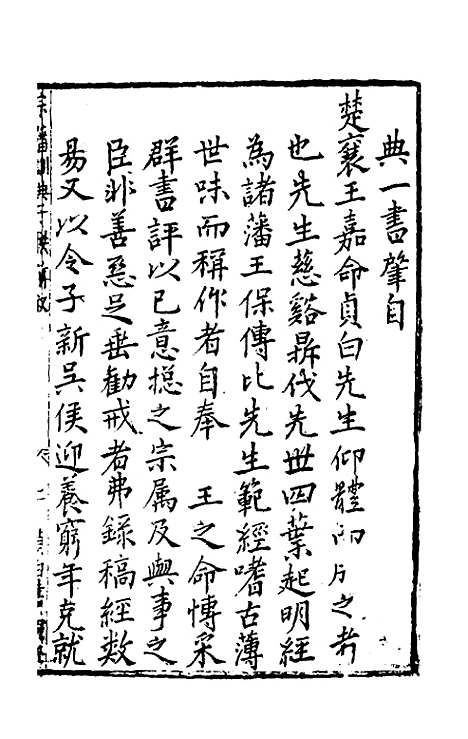 典一書肇自
楚襄王嘉命貞白先生仰體而片之者
也先生慈谿鼎伐先世四葉起明經
為諸藩王保傅比先生範經嗜古薄
世味而稱作者自奉　王之命慱采
群書評以已意揔之宗属及與事之
臣非善惡足垂勸戒者弗錄稿經数
易又以令子新吴侯迎養窮年克就